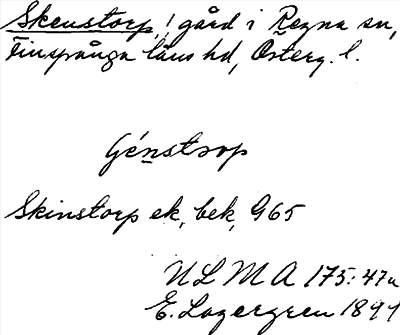 Skenstorp, ! gård i Regna sn,
Finspånga läns hd, Österg. l.
Génstrop
Skinstorp ek, bek, G65
ULMA 175:47a
E. Lagergren 1891